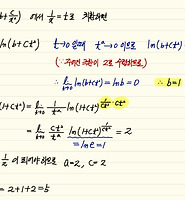 b+c/x^a) 에서 1/x = t로 치환하면
ln(b+ct^a) t→0 일때 t^a→0 이므로 ln(b+ct^a)
(∵ 주어진 극한이 2로 수렴하므로)
∴ lim t→0 ln(b+ct^a) = ln b = 0 ∴ b=1
(1+ct^a) = lim t→0 1/t^2 ln(1+ct^a)^{1/ct^a · ct^a}
= lim t→0 ct^a/t^2 ln(1+ct^a)^{1/ct^a} = 2
= ln e = 1
이 되어야 하므로 a=2, c=2
= 2+1+2=5